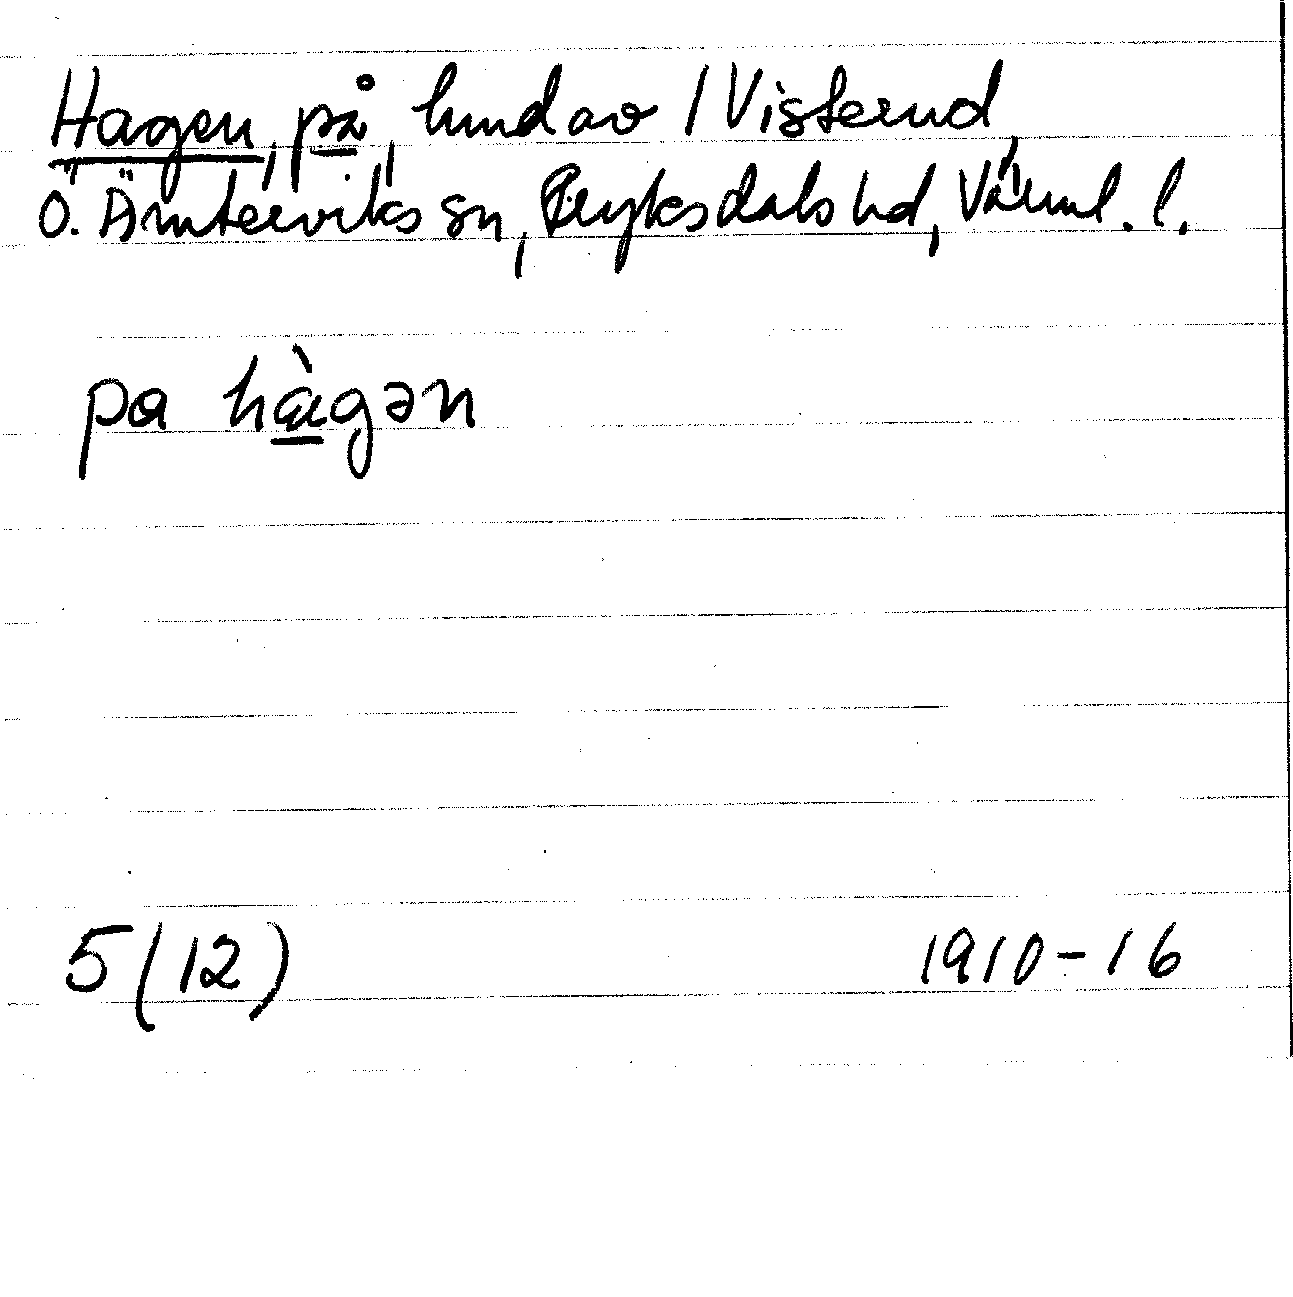 Hagen, på, hmd av 1 Visterud,
Ö. Ämterviks sn, Fryksdals hd, Värml. l.
pa hàgən
5(12) 1910-16